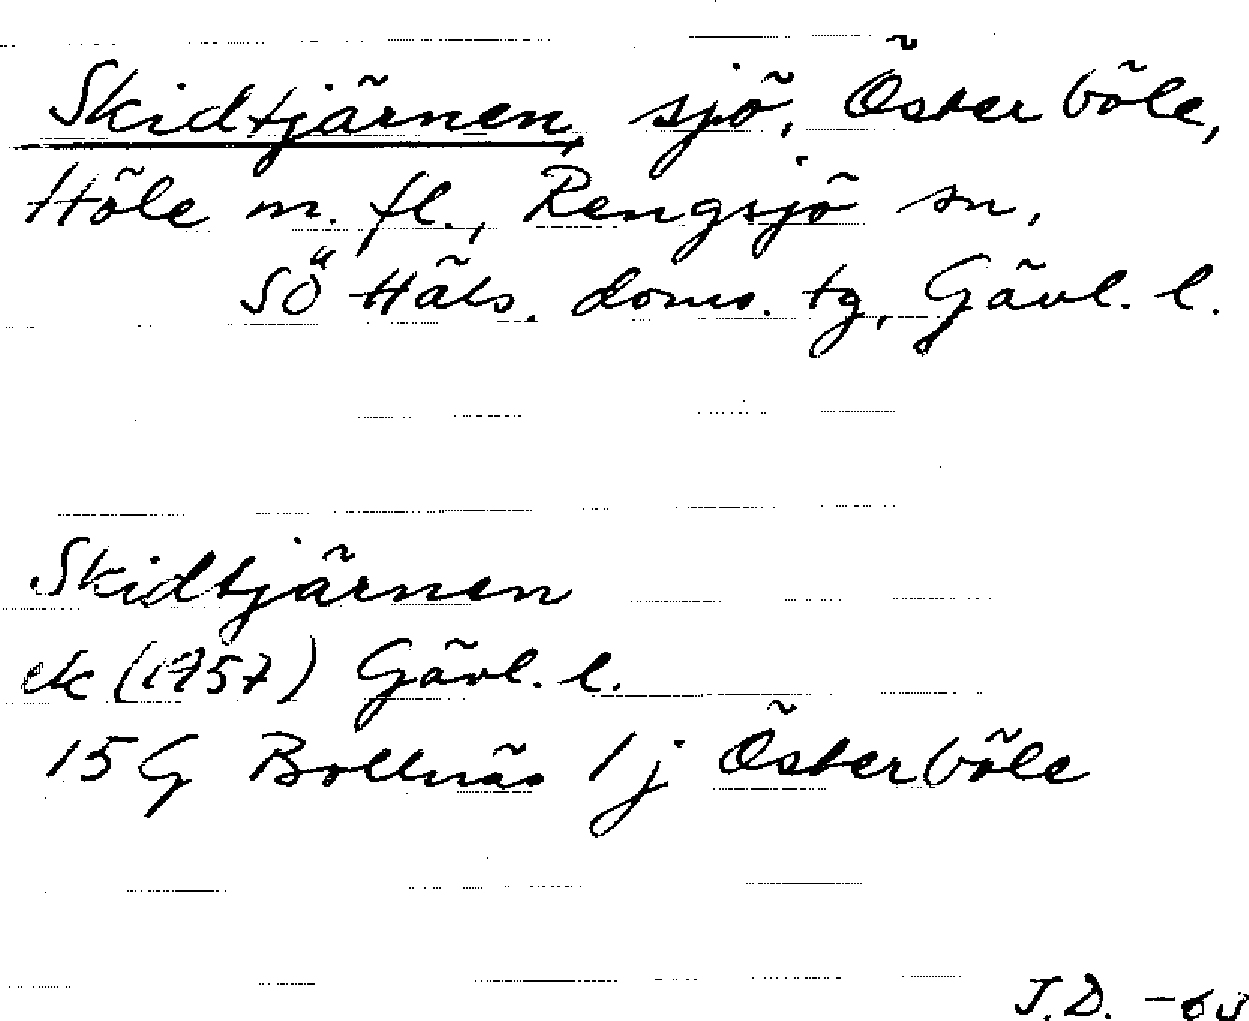 Skidtjärnen, sjö, Österböle,
Höle m. fl., Rengsjö sn,
SÖ Häls. doms. tg, Gävl. l.
Skidtjärnen
ek (1957) Gävl. l.
15 G Bollnäs 1 j Österböle
J.D. -63